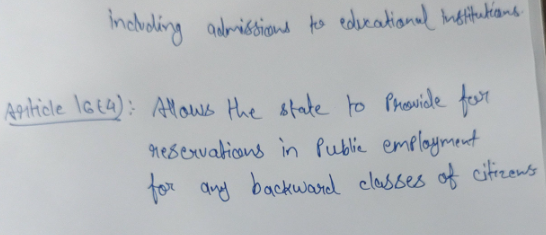 including admissions to educational Institutions.
Article 16(4): Allows the state to Provide for
reservations in Public employment
for any backward classes of citizens